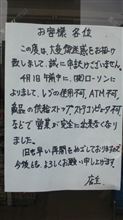 お客様 各位
この度は、大変御迷惑をお掛け
致しまして、誠に申訳ございません。
4月1日午前中に、(株)ローソンに
よりまして、レジの使用不可、ATM不可、
商品の供給ストップ、ストアコンピュータ不可、
などで営業が完全に出来なくなり
ました。
旧でも早い再開をめざしておりますので
今後とも、よろしくお願い申し上げます。
店主